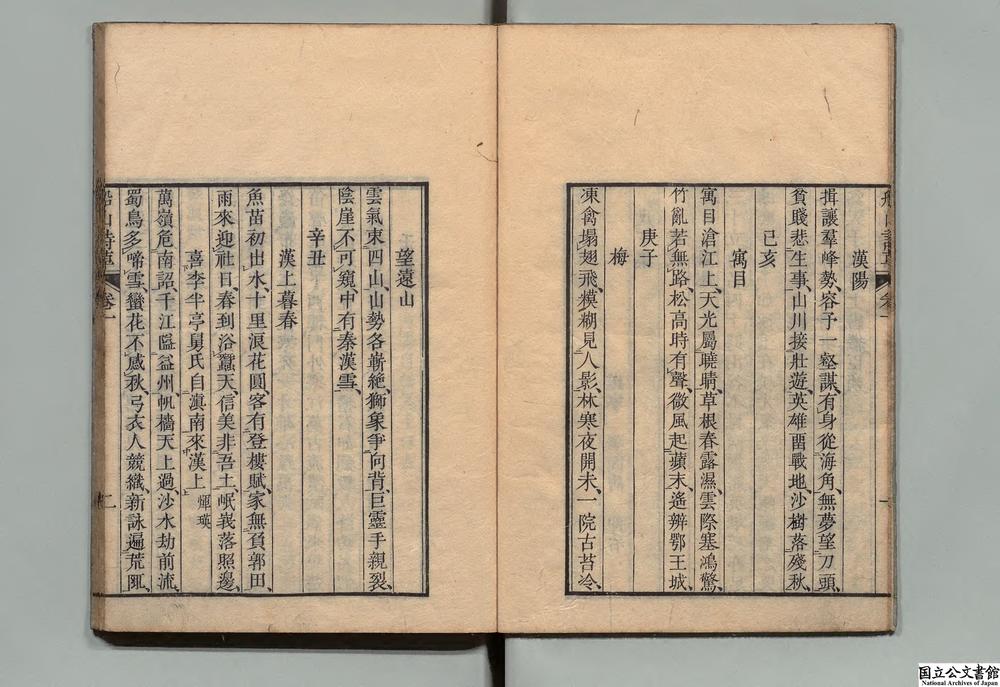 漢陽
揖讓羣峰勢容予一壑謀有身從海角無夢望刀頭
貧賤悲生事山川接壯遊英雄畱戰地沙樹落殘秋
己亥
寓目
寓目滄江上天光屬曉晴草根春露濕雲際塞鴻驚
竹亂若無路松高時有聲微風起蘋末遙辨鄂王城
庚子
梅
凍禽塌翅飛模糊見人影林寒夜開未一院古苔冷
船山詩草
卷一
二
望遠山
雲氣束四山山勢各嶄絶獅象爭向背巨靈手親裂
陰崖不可窺中有秦漢雪
辛丑
漢上暮春
魚苗初出水十里浪花圓客有登樓賦家無負郭田
雨來迎社日春到浴蠶天信美非吾土岷峩落照邊
喜李半亭舅氏自滇南來漢上 煇瑛
萬嶺危南詔千江隘益州帆檣天上過沙水劫前流
蜀鳥多啼雪蠻花不感秋弓衣人競織新詠遍荒陬
国立公文書館
National Archives of Japan